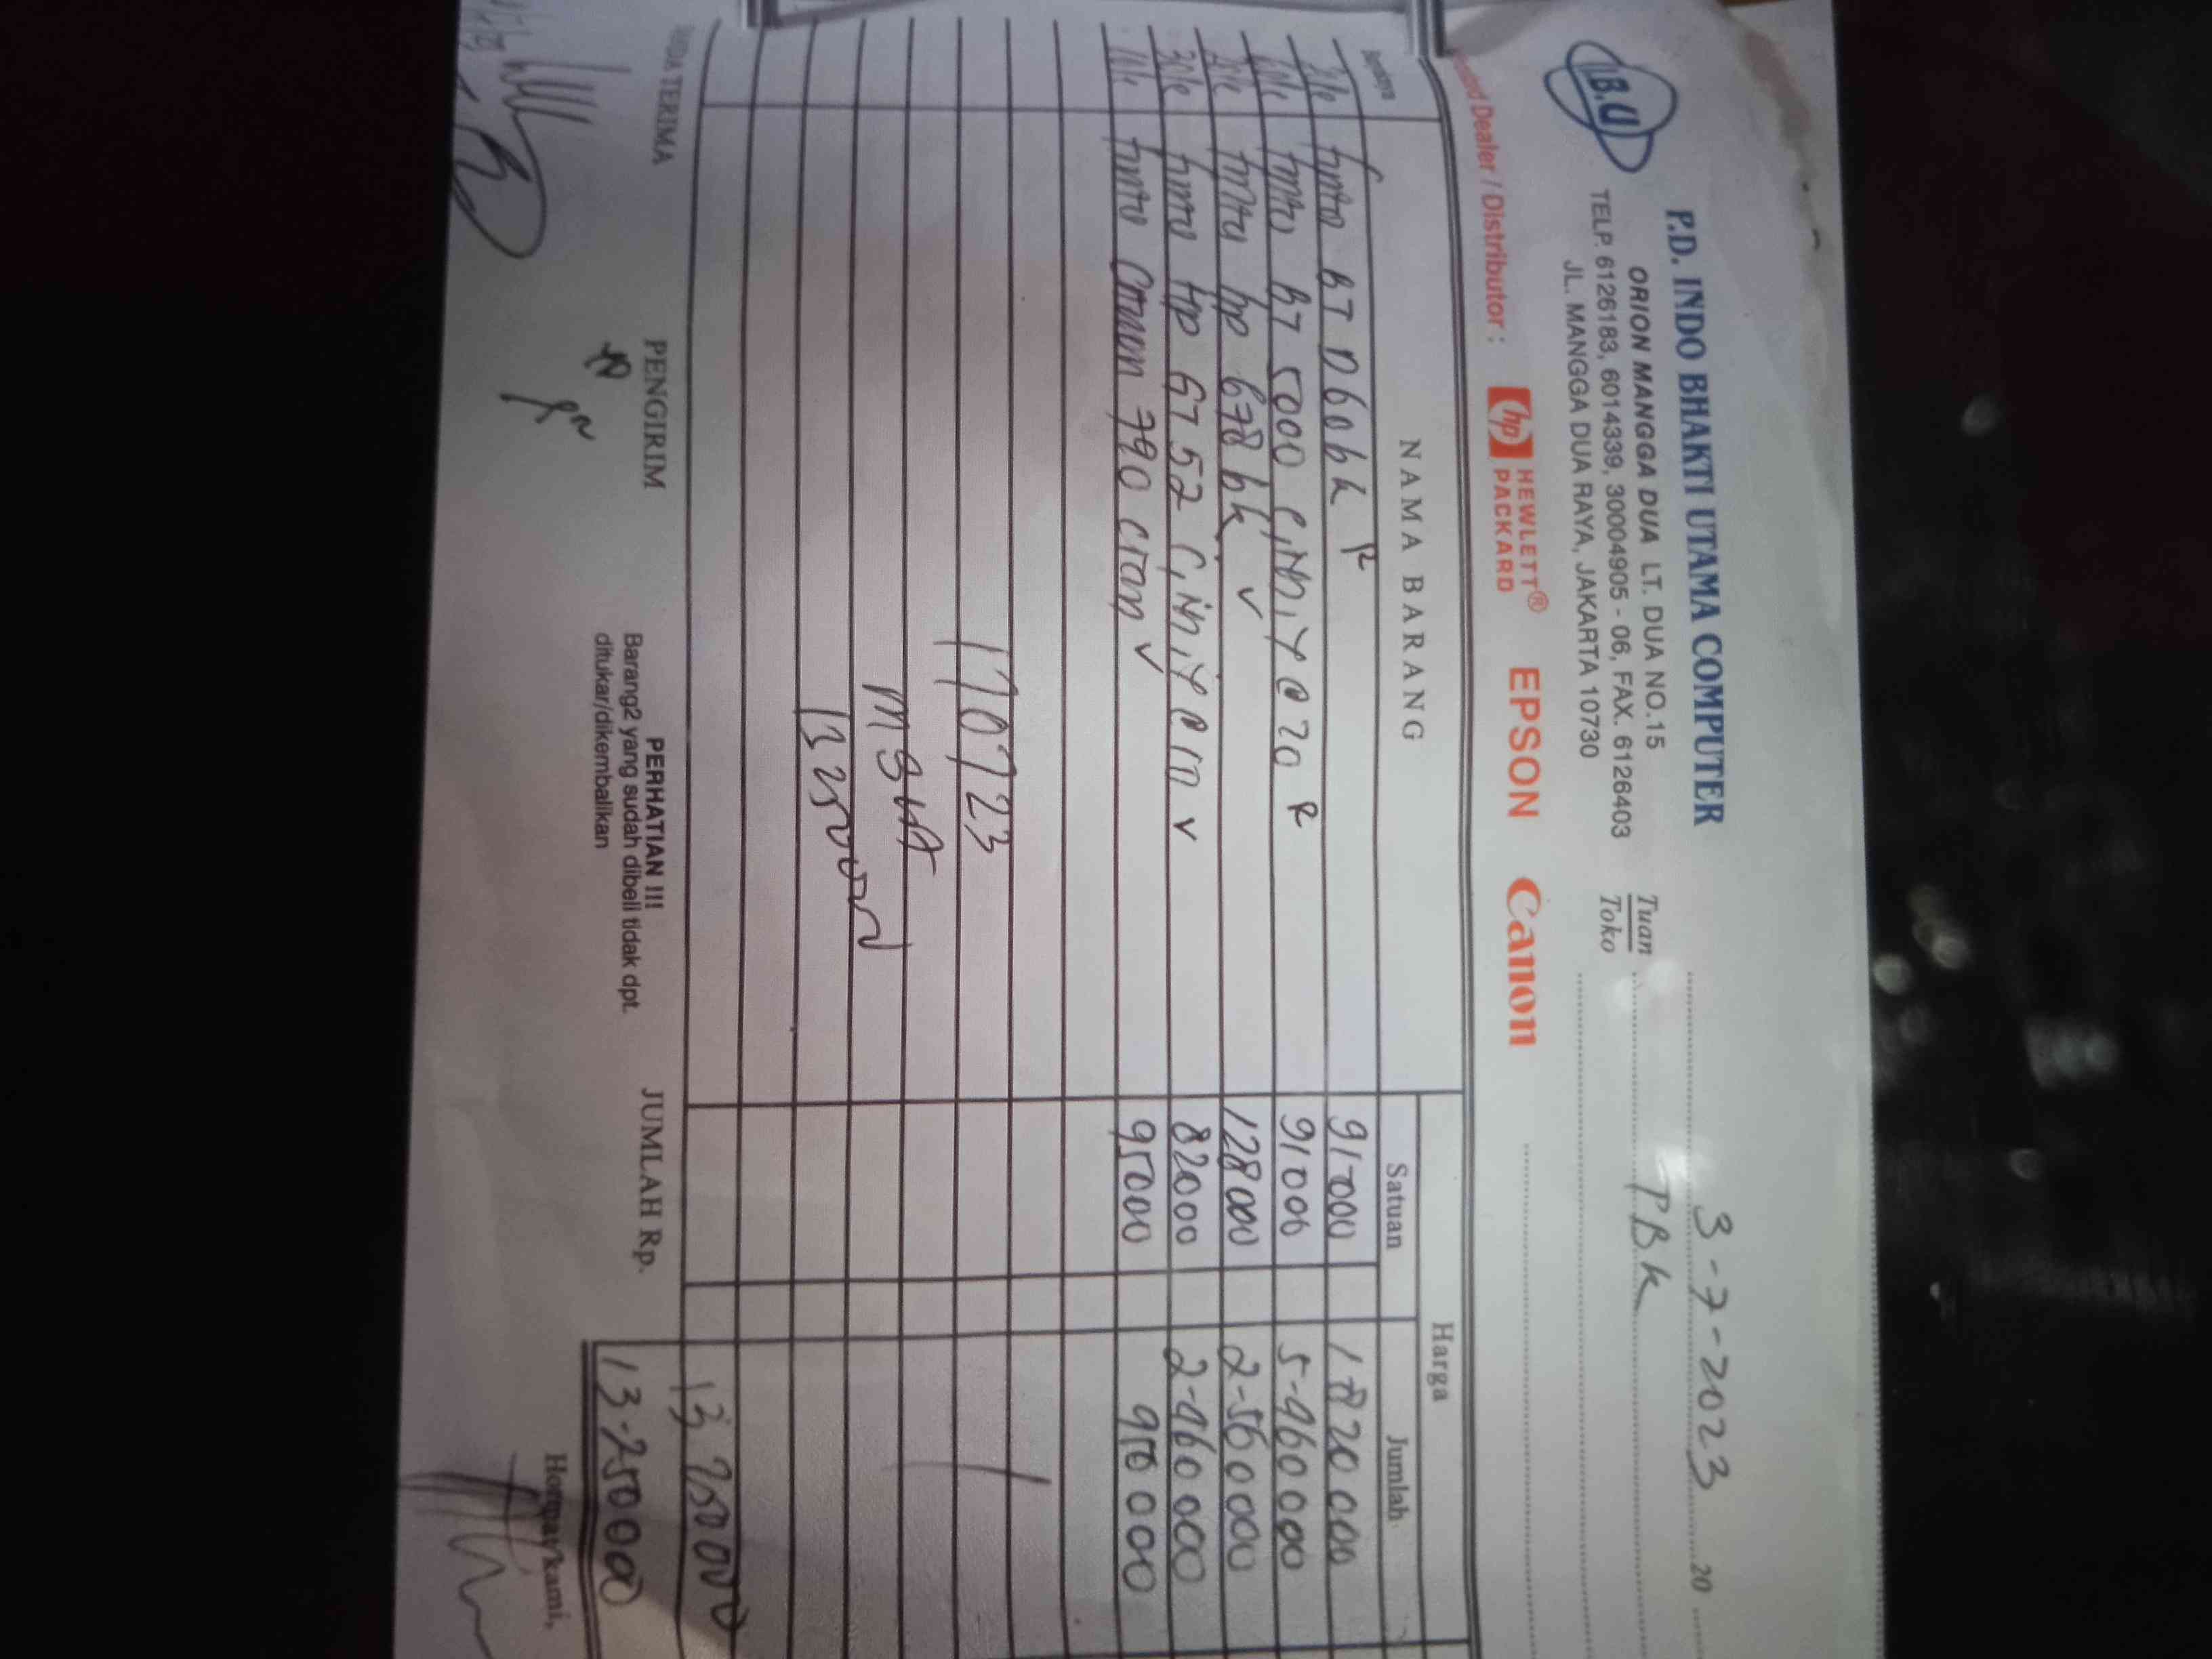 P.D. INDO BHAKTI UTAMA COMPUTER
ORION MANGGA DUA LT. DUA NO.15
TELP. 6126183, 6014339, 30004905 - 06, FAX. 6126403
JL. MANGGA DUA RAYA, JAKARTA 10730
B.U
3-7-2023 20
Tuan
Toko
PBK
Dealer / Distributor :
hp HEWLETT®
PACKARD
EPSON
Canon
NAMA BARANG
Harga
Satuan
Jumlah
tinta BT D60 bk 91-000 1820000
tinta BT 5000 c,m,y @ 20 91000 5-460000
tinta hp 678 bk 128000 2-560000
tinta HP GT 52 c,m,y @ 10 82000 2-460000
tinta Canon 790 cian 95000 950000
170723
13250000
13250000
TANDA TERIMA
PENGIRIM
PERHATIAN !!!
Barang2 yang sudah dibeli tidak dpt.
ditukar/dikembalikan
JUMLAH Rp.
13-250000
Hormat kami,